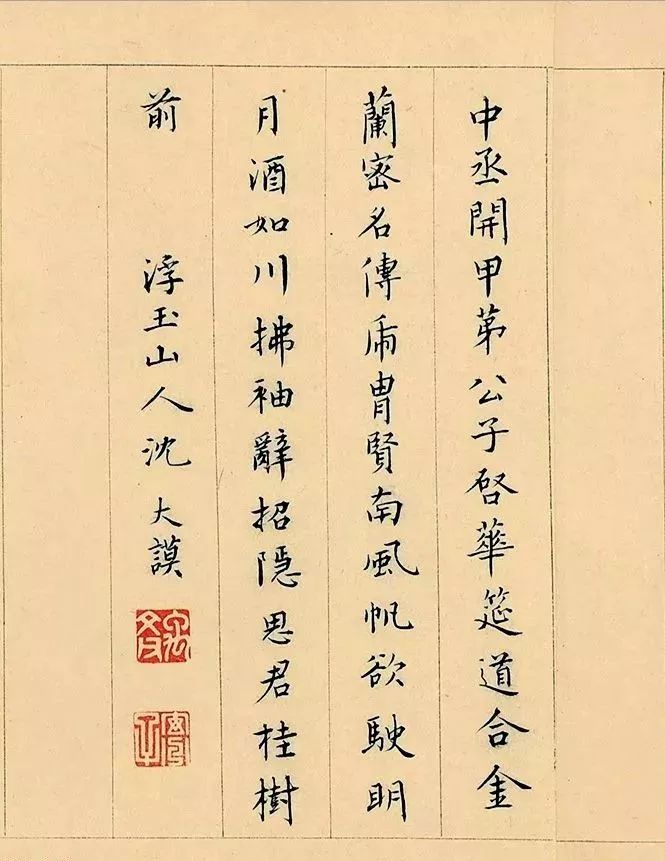 中丞開甲苐公子啓華筵道合金
蘭密名傳胄賢南風帆欲駛明
月酒如川拂袖辭招隱思君桂樹
前 浮玉山人沈大謨